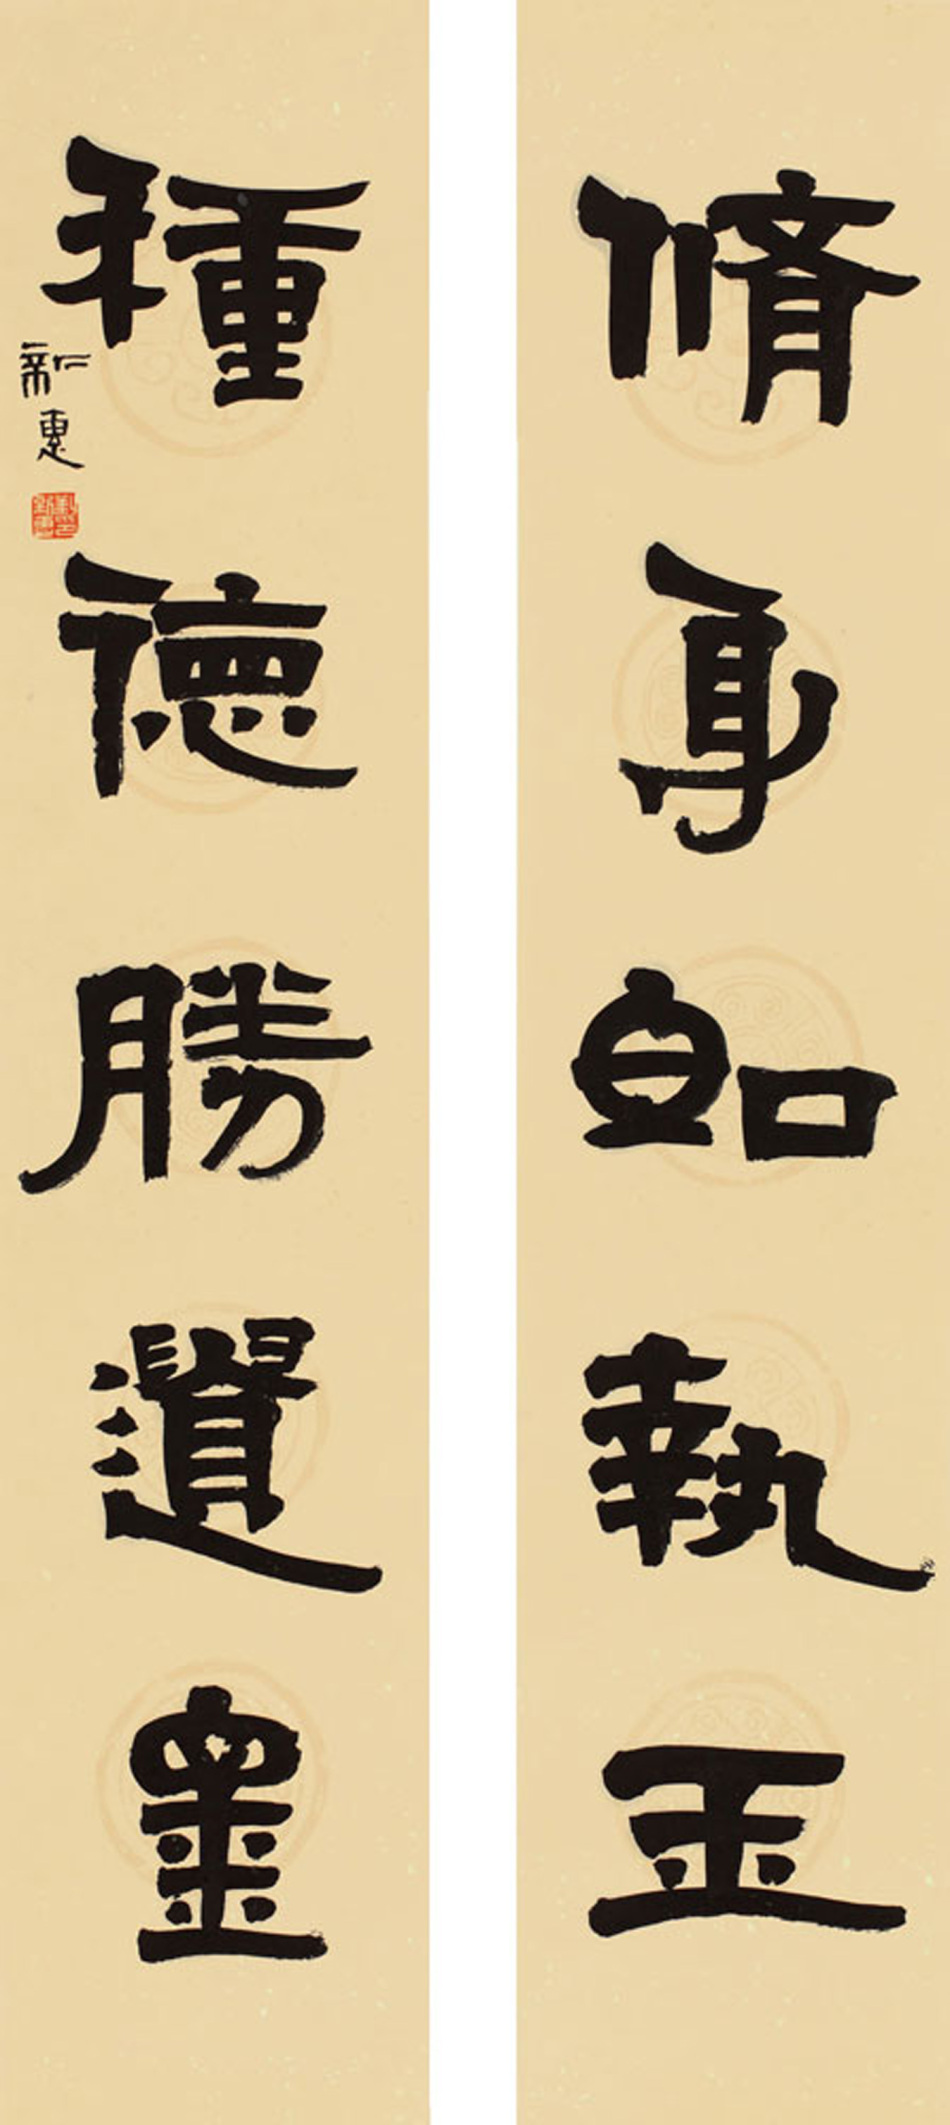 脩身如執玉
種德勝遺金
新惠